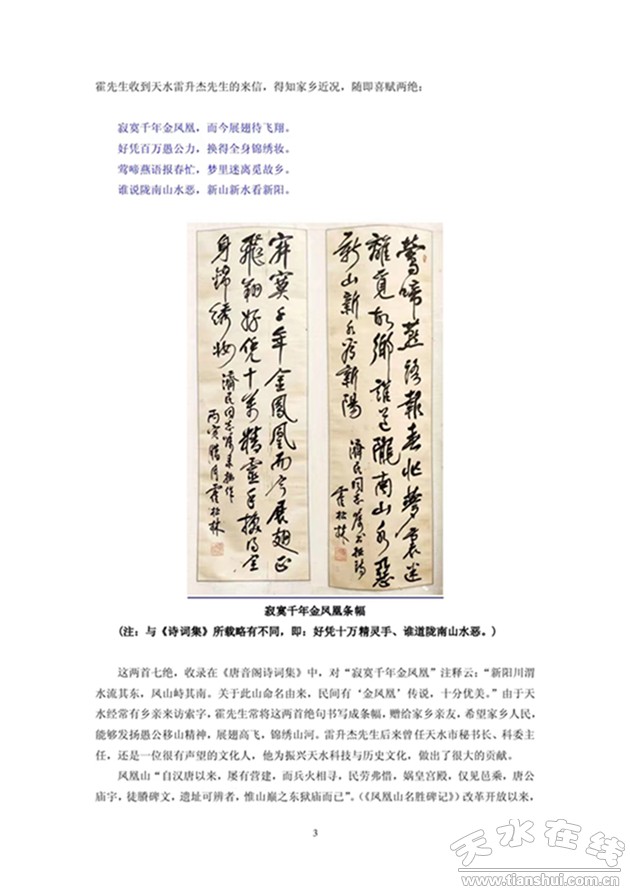 霍先生收到天水雷升杰先生的来信，得知家乡近况，随即喜赋两绝：
寂寞千年金凤凰，而今展翅待飞翔。
好凭百万愚公力，换得全身锦绣妆。
莺啼燕语报春忙，梦里迷离觅故乡。
谁说陇南山水恶，新山新水看新阳。
莺啼燕语報春忙夢裏迷
離覓故鄉誰道隴南山水惡
新山新水看新陽
濟民同志屬書拙詩
霍松林
寂寞千年金鳳凰而今展翅正
飛翔好凭十萬精靈手換得全
身錦绣妝
濟民同志屬录拙作
丙寅腊月霍松林
寂寞千年金凤凰条幅
(注：与《诗词集》所载略有不同，即：好凭十万精灵手、谁道陇南山水恶。)
这两首七绝，收录在《唐音阁诗词集》中，对“寂寞千年金凤凰”注释云：“新阳川渭
水流其东，凤山峙其南。关于此山命名由来，民间有‘金凤凰’传说，十分优美。”由于天
水经常有乡亲来访索字，霍先生常将这两首绝句书写成条幅，赠给家乡亲友，希望家乡人民，
能够发扬愚公移山精神，展翅高飞，锦绣山河。雷升杰先生后来曾任天水市秘书长、科委主
任，还是一位很有声望的文化人，他为振兴天水科技与历史文化，做出了很大的贡献。
凤凰山“自汉唐以来，屡有营建，而兵火相寻，民劳弗惜，娲皇宫殿，仅见邑乘，唐公
庙宇，徒賸碑文，遗址可辨者，惟山巅之东狱庙而已”。（《凤凰山名胜碑记》）改革开放以来，
3
天水在线
www.tianshui.com.cn